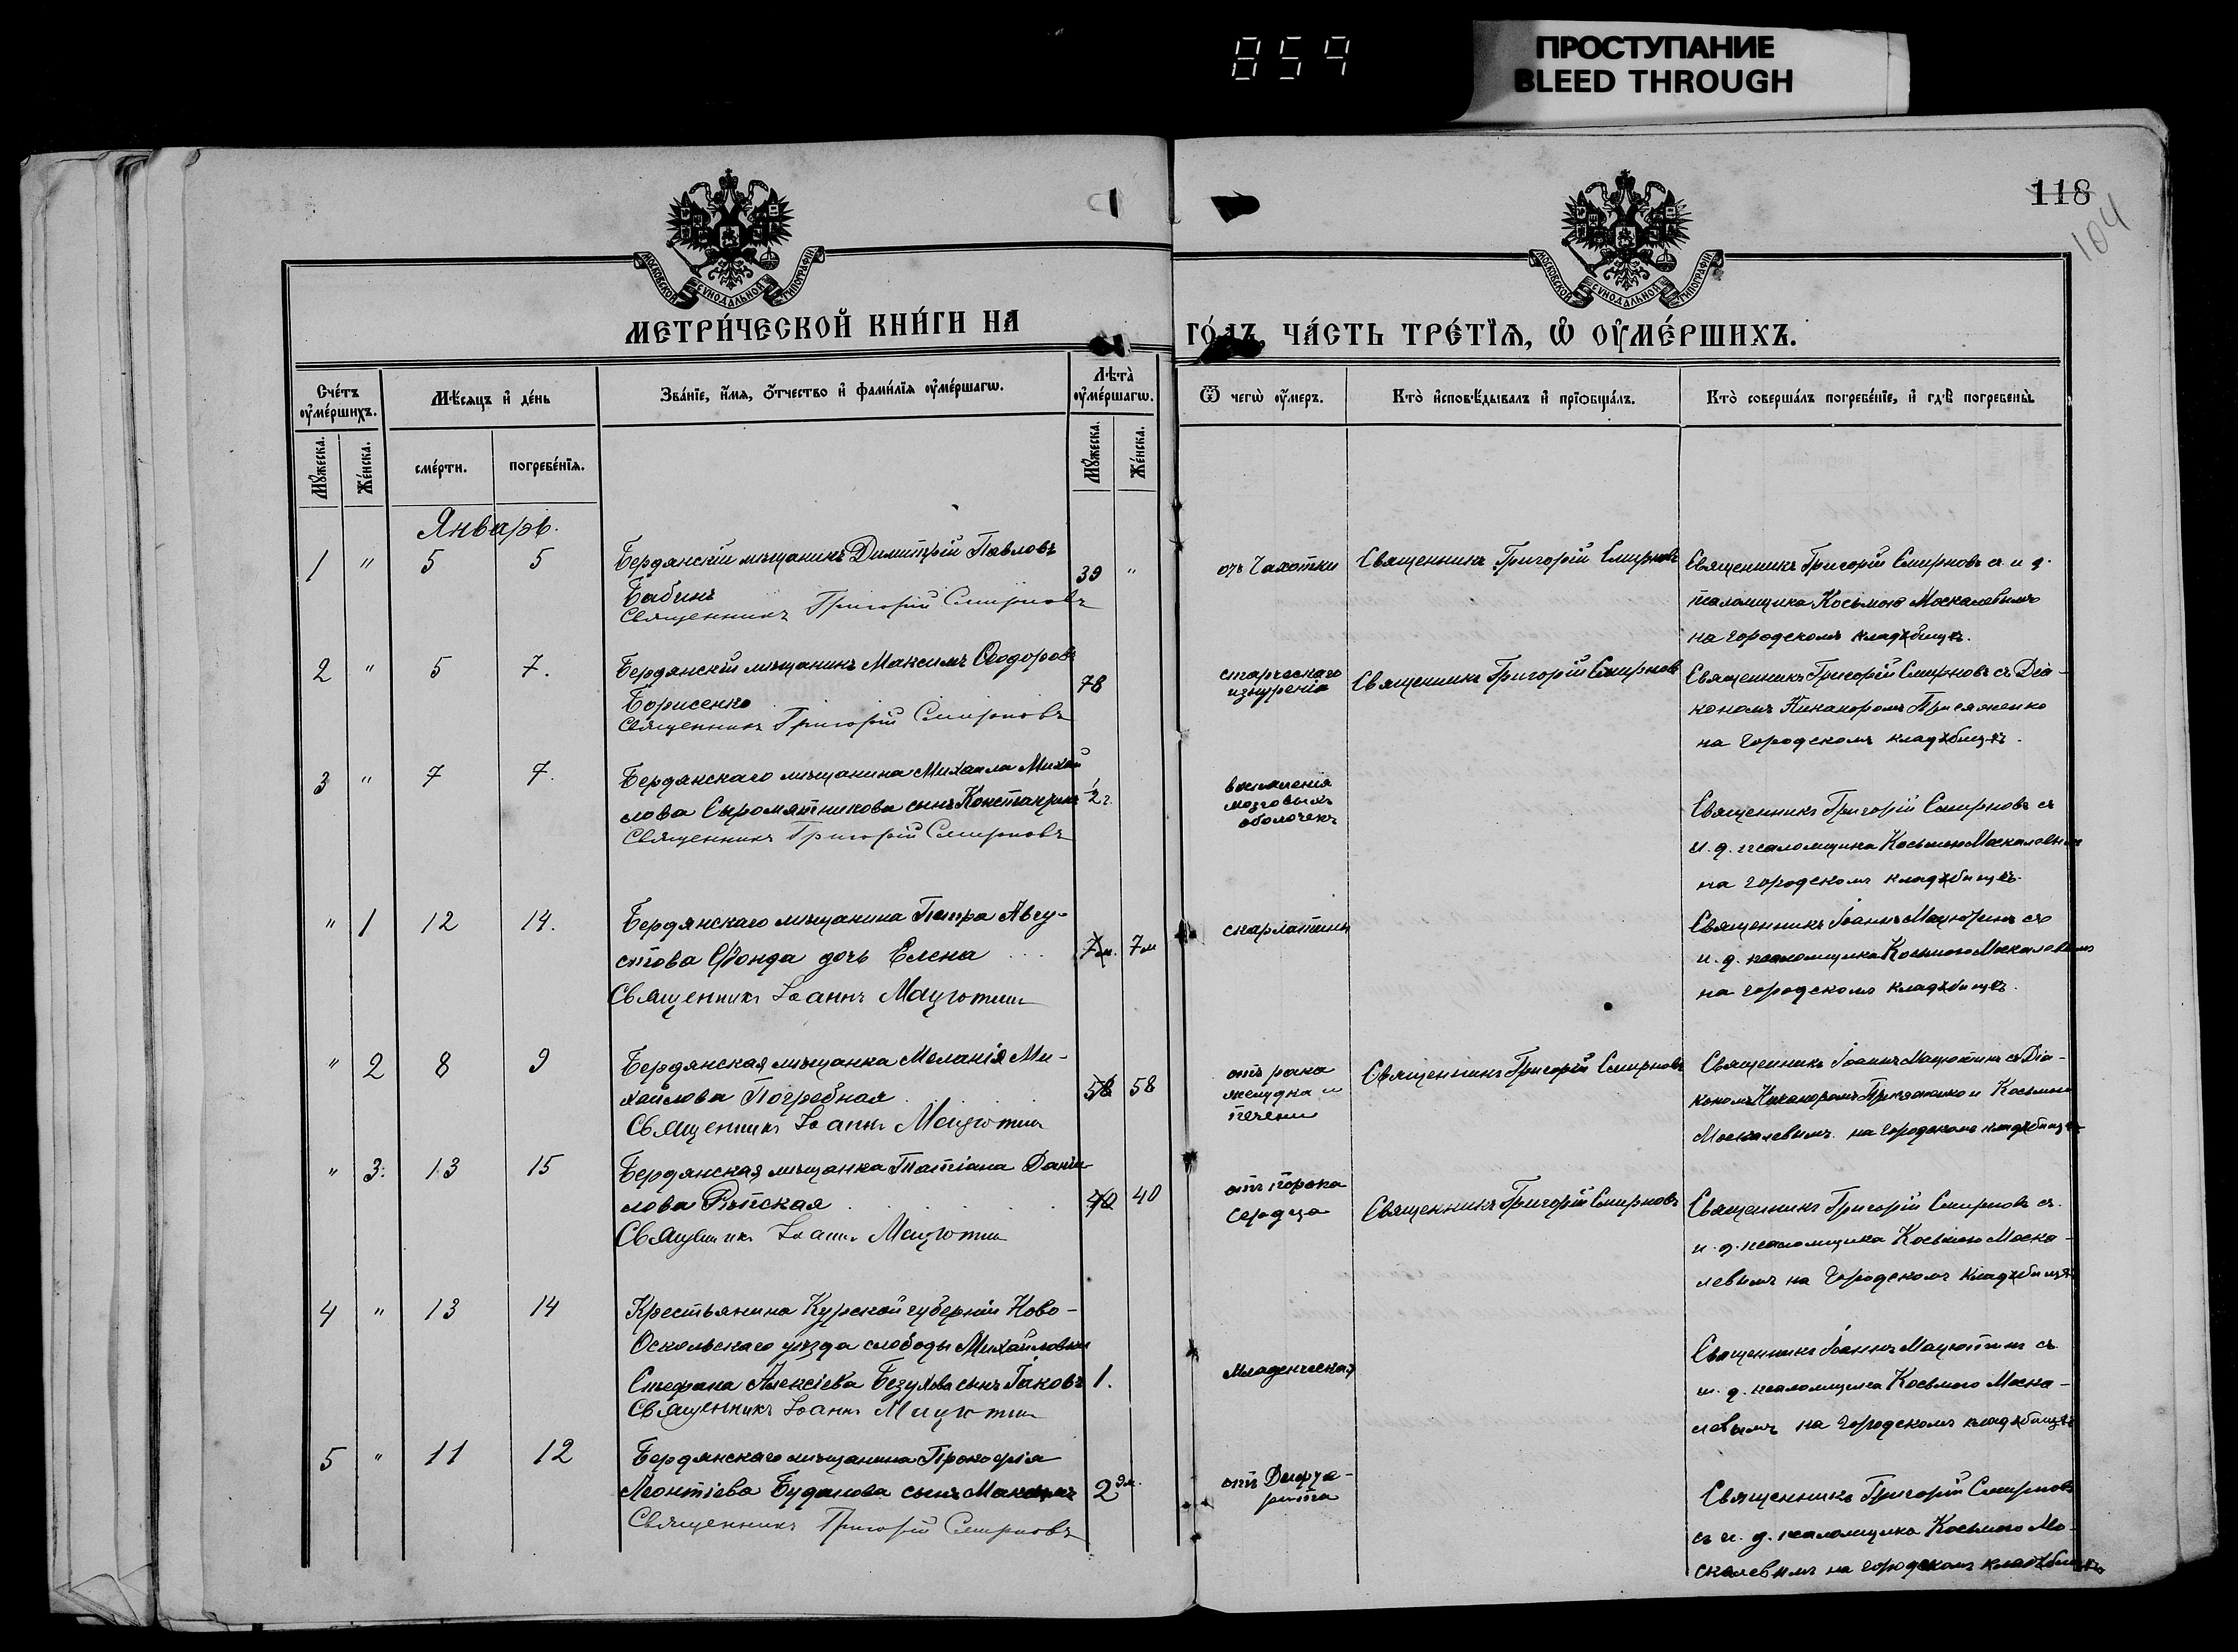 859
ПРОСТУПАНИЕ
BLEED THROUGH
118
104
МОСКОВСКОЙ СѴНОДАЛЬНОЙ ТИПОГРАФІИ
МОСКОВСКОЙ СѴНОДАЛЬНОЙ ТИПОГРАФІИ
МЕТРИ́ЧЕСКОЙ КНИ́ГИ НА
ГО́ДЪ, ЧА́СТЬ ТРЕ́ТІѦ, Ѽ ОУМЕ́РШИХЪ.
Сче́тъ оуме́ршихъ.
Мѣ́сяцъ и де́нь
Зва́нїе, и́мя, о́тчество и фами́лїя оуме́ршагѡ.
Лѣта̀ оуме́ршагѡ.
Ѿ чегѡ̀ оу́меръ.
Кто̀ и́сповѣ́дывалъ и прїобща́лъ.
Кто̀ соверша́лъ погребе́нїе, и гдѣ̀ погребены̀.
Мꙋ́жеска.
Же́нска.
сме́рти.
погребе́нїя.
Мꙋ́жеска.
Же́нска.
Январь.
1 " 5 5 Бердянскій мѣщанинъ Димитрій Павловъ
Бабинъ 39 "
Священникъ Григорій Смирновъ
отъ Чахотки
Священникъ Григорій Смирновъ
Священникъ Григорій Смирновъ съ и д.
псаломщика Косьмою Москалевымъ
на городскомъ кладбищѣ.
2 " 5 7. Бердянскій мѣщанинъ Максимъ Ѳеодоровъ
Борисенко 78
Священникъ Григорій Смирновъ
старческаго
изнуренія
Священникъ Григорій Смирновъ
Священникъ Григорій Смирновъ съ Діа-
кономъ Никаноромъ Присяженко
на городскомъ кладбищѣ.
3 " 7 7. Бердянскаго мѣщанина Михаила Михай
лова Сыромятникова сынъ Константинъ 1/2 г.
Священникъ Григорій Смирновъ
воспаленія
мозговыхъ
оболочекъ
Священникъ Григорій Смирновъ съ
и. д. псаломщика Косьмою Москалевымъ
на городскомъ кладбищѣ.
" 1 12 14. Бердянскаго мѣщанина Петра Авгу-
стова Фонда дочь Елена 7 м. 7 м
Священникъ Іоаннъ Мацютинъ
скарлатины
Священникъ Іоаннъ Мацютинъ съ
и. д. псаломщика Косьмою Москалевымъ
на городскомъ кладбищѣ.
" 2 8 9 Бердянская мѣщанка Меланія Ми-
хайлова Погребная 58 58
Священникъ Іоаннъ Мацютинъ
отъ рака
желудка и
печени
Священникъ Григорій Смирновъ
Священникъ Іоаннъ Мацютинъ съ Діа-
кономъ Никаноромъ Присяженко и Косьмою
Москалевымъ на городскомъ кладбищѣ
" 3. 13 15 Бердянская мѣщанка Татіана Дани-
лова 40 40
Священникъ Іоаннъ Мацютинъ
отъ порока
сердца
Священникъ Григорій Смирновъ
Священникъ Григорій Смирновъ съ
и. д. псаломщика Косьмою Моска-
левымъ на городскомъ кладбищѣ
4 " 13 14 Крестьянина Курской губерніи Ново-
Оскольскаго уѣзда слободы Михайловки
Стефана Алексіева Безухова сынъ Іаковъ 1.
Священникъ Іоаннъ Мацютинъ
Младенческая
Священникъ Іоаннъ Мацютинъ съ
и. д. псаломщика Косьмою Моска-
левымъ на городскомъ кладбищѣ
5 " 11 12 Бердянскаго мѣщанина Прокофія
Леонтіева Буданова сынъ Максимъ 2
Священникъ Григорій Смирновъ
отъ Дифте-
рита
Священникъ Григорій Смирновъ
съ и. д. псаломщика Косьмою Мо-
скалевымъ на городскомъ кладбищѣ